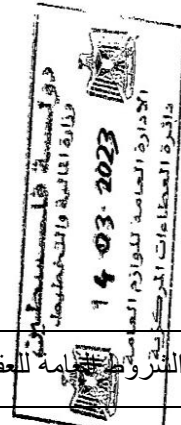 دولة فلسطين
وزارة المالية والتخطيط
14-03-2023
الادارة العامة للوازم العامة
دائرة العطاءات المركزية
الشروط العامة للعقد